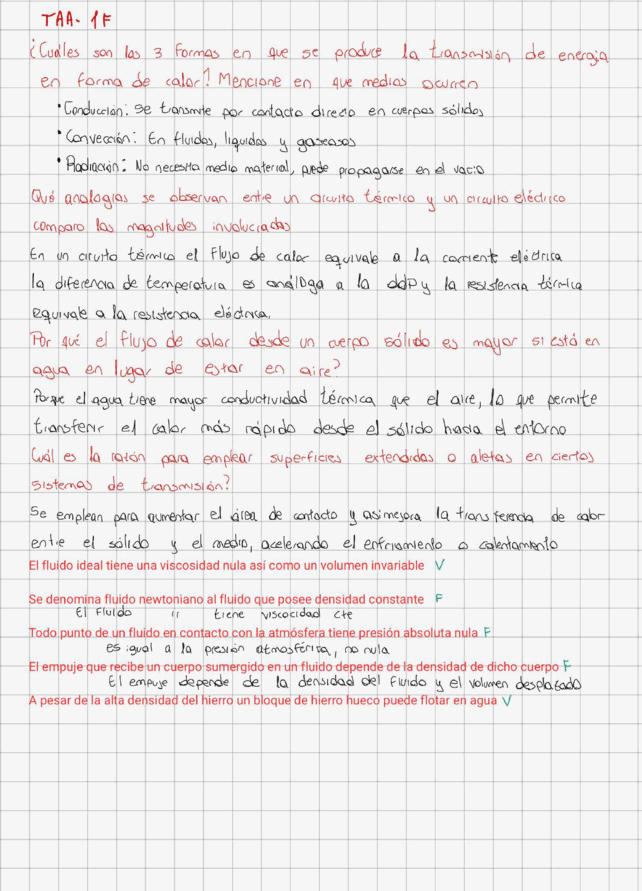 TAA- 1F
¿Cuáles son las 3 formas en que se produce la transmisión de energía
en forma de calor? Mencione en que medios ocurren
• Conducción: Se transmite por contacto directo en cuerpos sólidos
• Convección: En fluidos, liquidos y gaseosos
• Radiación: No necesita medio material, puede propagarse en el vacio
Qué analogías se observan entre un circuito térmico y un circuito eléctrico
comparo las magnitudes involucradas
En un circuito térmico el flujo de calor equivale a la corriente eléctrica
la diferencia de temperatura es análoga a la ddp y la resistencia térmica
equivale a la resistencia eléctrica.
Por qué el flujo de calor desde un cuerpo sólido es mayor si está en
agua en lugar de estar en aire?
Porque el agua tiene mayor conductividad térmica que el aire, lo que permite
transferir el calor más rápido desde el sólido hacia el entorno
Cuál es la razón para emplear superficies extendidas o aletas en ciertos
sistemas de transmisión?
Se emplean para aumentar el área de contacto y asi mejora la transferencia de calor
entre el sólido y el medio, acelerando el enfriamiento o calentamiento
El fluido ideal tiene una viscosidad nula así como un volumen invariable V
Se denomina fluido newtoniano al fluido que posee densidad constante F
El fluido " tiene viscocidad cte
Todo punto de un fluido en contacto con la atmósfera tiene presión absoluta nula F
es igual a la presión atmosférica, no nula
El empuje que recibe un cuerpo sumergido en un fluido depende de la densidad de dicho cuerpo F
El empuje depende de la densidad del fluido y el volumen desplazado
A pesar de la alta densidad del hierro un bloque de hierro hueco puede flotar en agua V